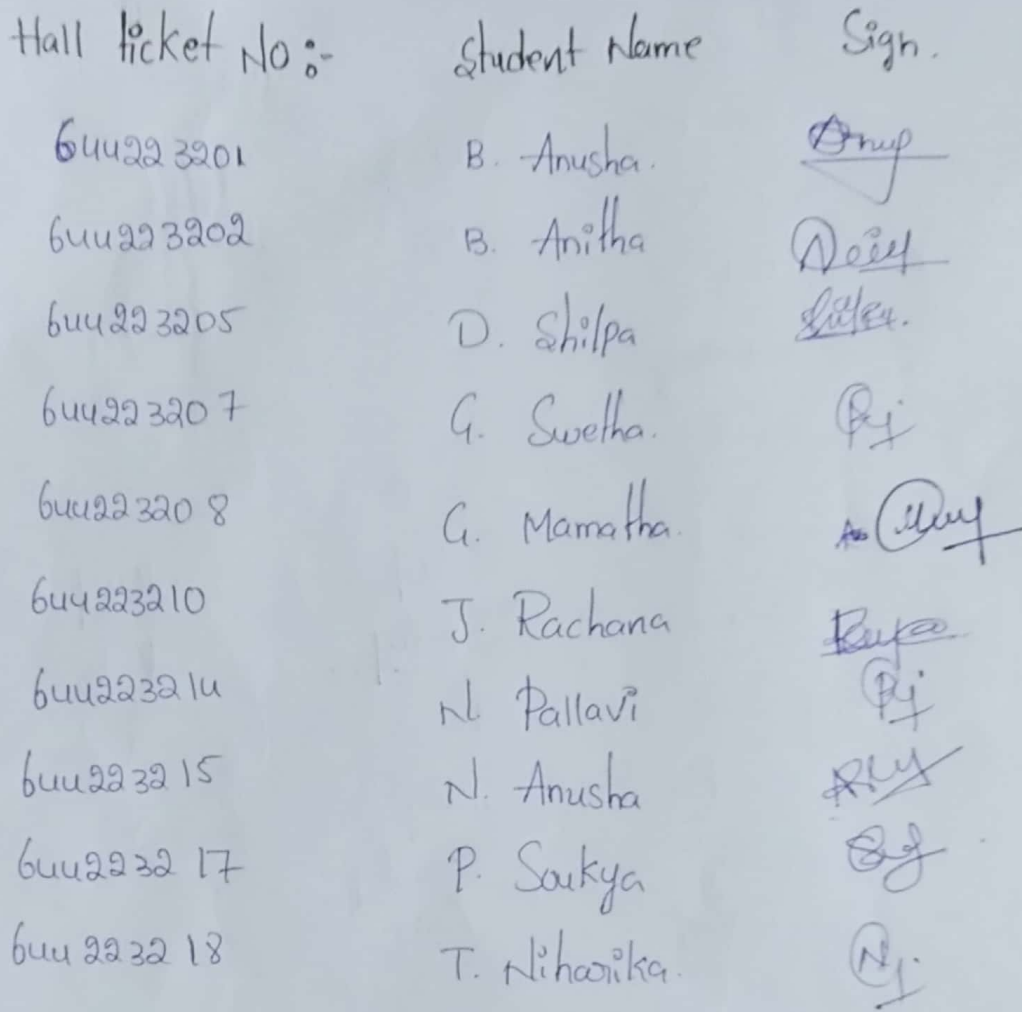 Hall ticket No:- Student Name Sign.
644223201 B. Anusha.
644223202 B. Anitha
644223205 D. Shilpa
644223207 G. Swetha.
644223208 G. Mamatha.
644223210 J. Rachana
644223214 N. Pallavi
644223215 N. Anusha
644223217 P. Soukya
644223218 T. Niharika.